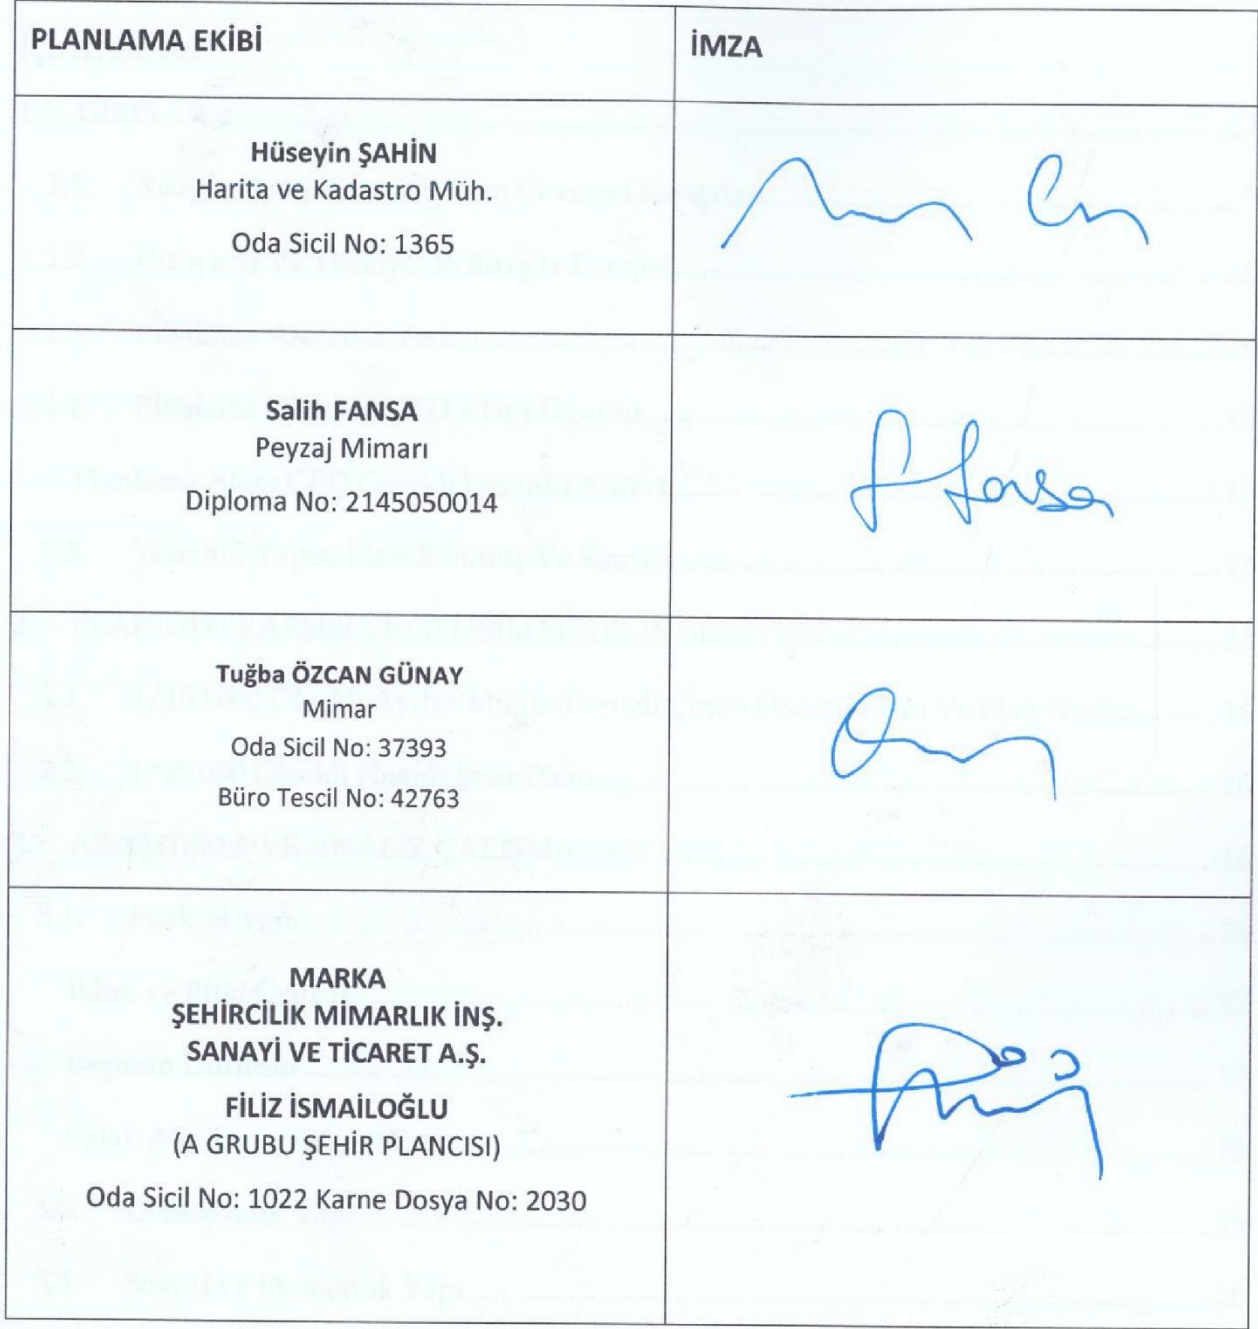 PLANLAMA EKİBİ
İMZA
Hüseyin ŞAHİN
Harita ve Kadastro Müh.
Oda Sicil No: 1365
Salih FANSA
Peyzaj Mimarı
Diploma No: 2145050014
Tuğba ÖZCAN GÜNAY
Mimar
Oda Sicil No: 37393
Büro Tescil No: 42763
MARKA
ŞEHİRCİLİK MİMARLIK İNŞ.
SANAYİ VE TİCARET A.Ş.
FİLİZ İSMAİLOĞLU
(A GRUBU ŞEHİR PLANCISI)
Oda Sicil No: 1022 Karne Dosya No: 2030